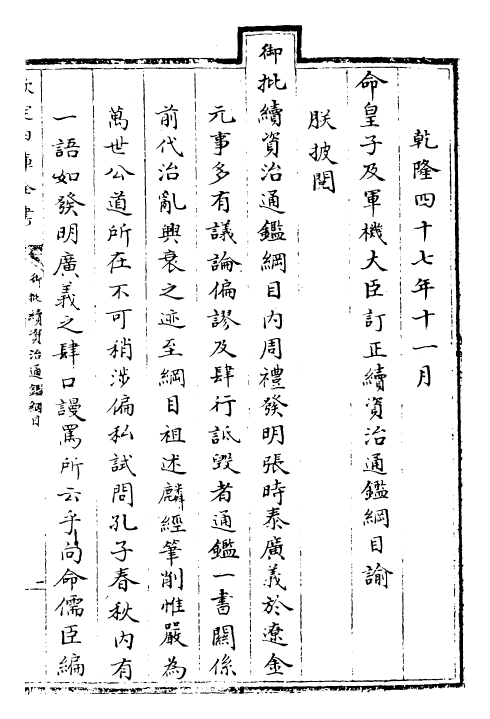 乾隆四十七年十一月
命皇子及軍機大臣訂正續資治通鑑綱目諭
朕披閱
御批續資治通鑑綱目内周禮發明張時泰廣義於遼金
元事多有議論偏謬及肆行詆毀者通鑑一書關係
前代治亂興衰之迹至綱目祖述麟經筆削惟嚴為
萬世公道所在不可稍涉偏私試問孔子春秋内有
一語如發明廣義之肆口謾罵所云乎向命儒臣編
欽定四庫全書
御批續資治通鑑綱目
一